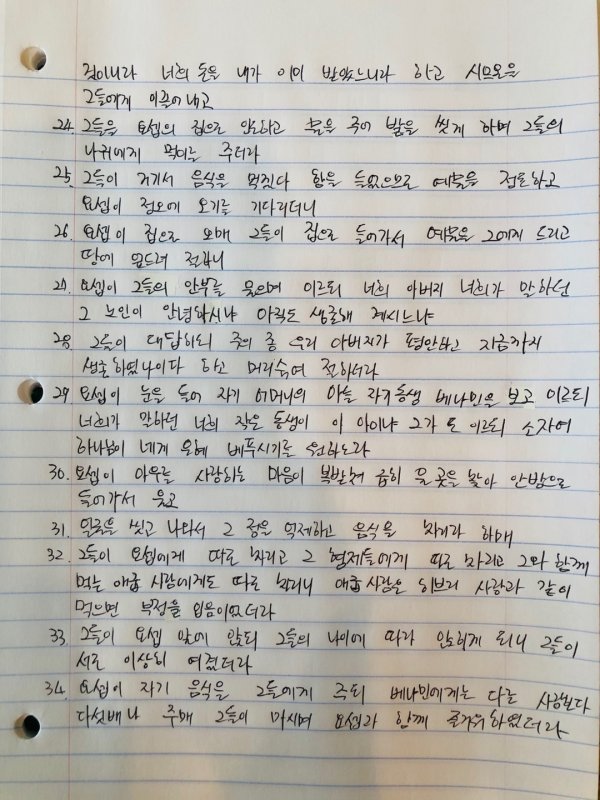 것이니라 너희 돈은 내가 이미 받았느니라 하고 시므온을
그들에게 이끌어내고
24. 그들을 요셉의 집으로 인도하고 물을 주어 발을 씻게 하며 그들의
나귀에게 먹이를 주더라
25. 그들이 거기서 음식을 먹겠다 함을 들었으므로 예물을 정돈하고
요셉이 정오에 오기를 기다리더니
26. 요셉이 집으로 오매 그들이 집으로 들어가서 예물을 그에게 드리고
땅에 엎드려 절하니
27. 요셉이 그들의 안부를 물으며 이르되 너희 아버지 너희가 말하던
그 노인이 안녕하시냐 아직도 생존해 계시느냐
28. 그들이 대답하되 주의 종 우리 아버지가 평안하고 지금까지
생존하였나이다 하고 머리숙여 절하더라
29. 요셉이 눈을 들어 자기 어머니의 아들 자기 동생 베냐민을 보고 이르되
너희가 말하던 너희 작은 동생이 이 아이냐 그가 또 이르되 소자여
하나님이 네게 은혜 베푸시기를 원하노라
30. 요셉이 아우를 사랑하는 마음이 복받쳐 급히 울 곳을 찾아 안방으로
들어가서 울고
31. 얼굴을 씻고 나와서 그 정을 억제하고 음식을 차리라 하매
32. 그들이 요셉에게 따로 차리고 그 형제들에게 따로 차리고 그와 함께
먹는 애굽 사람에게도 따로 차리니 애굽사람은 히브리 사람과 같이
먹으면 부정을 입음이었더라
33. 그들이 요셉 앞에 앉되 그들의 나이에 따라 앉히게 되니 그들이
서로 이상히 여겼더라
34. 요셉이 자기 음식을 그들에게 주되 베냐민에게는 다른 사람보다
다섯배나 주매 그들이 마시며 요셉과 함께 즐거워하였더라